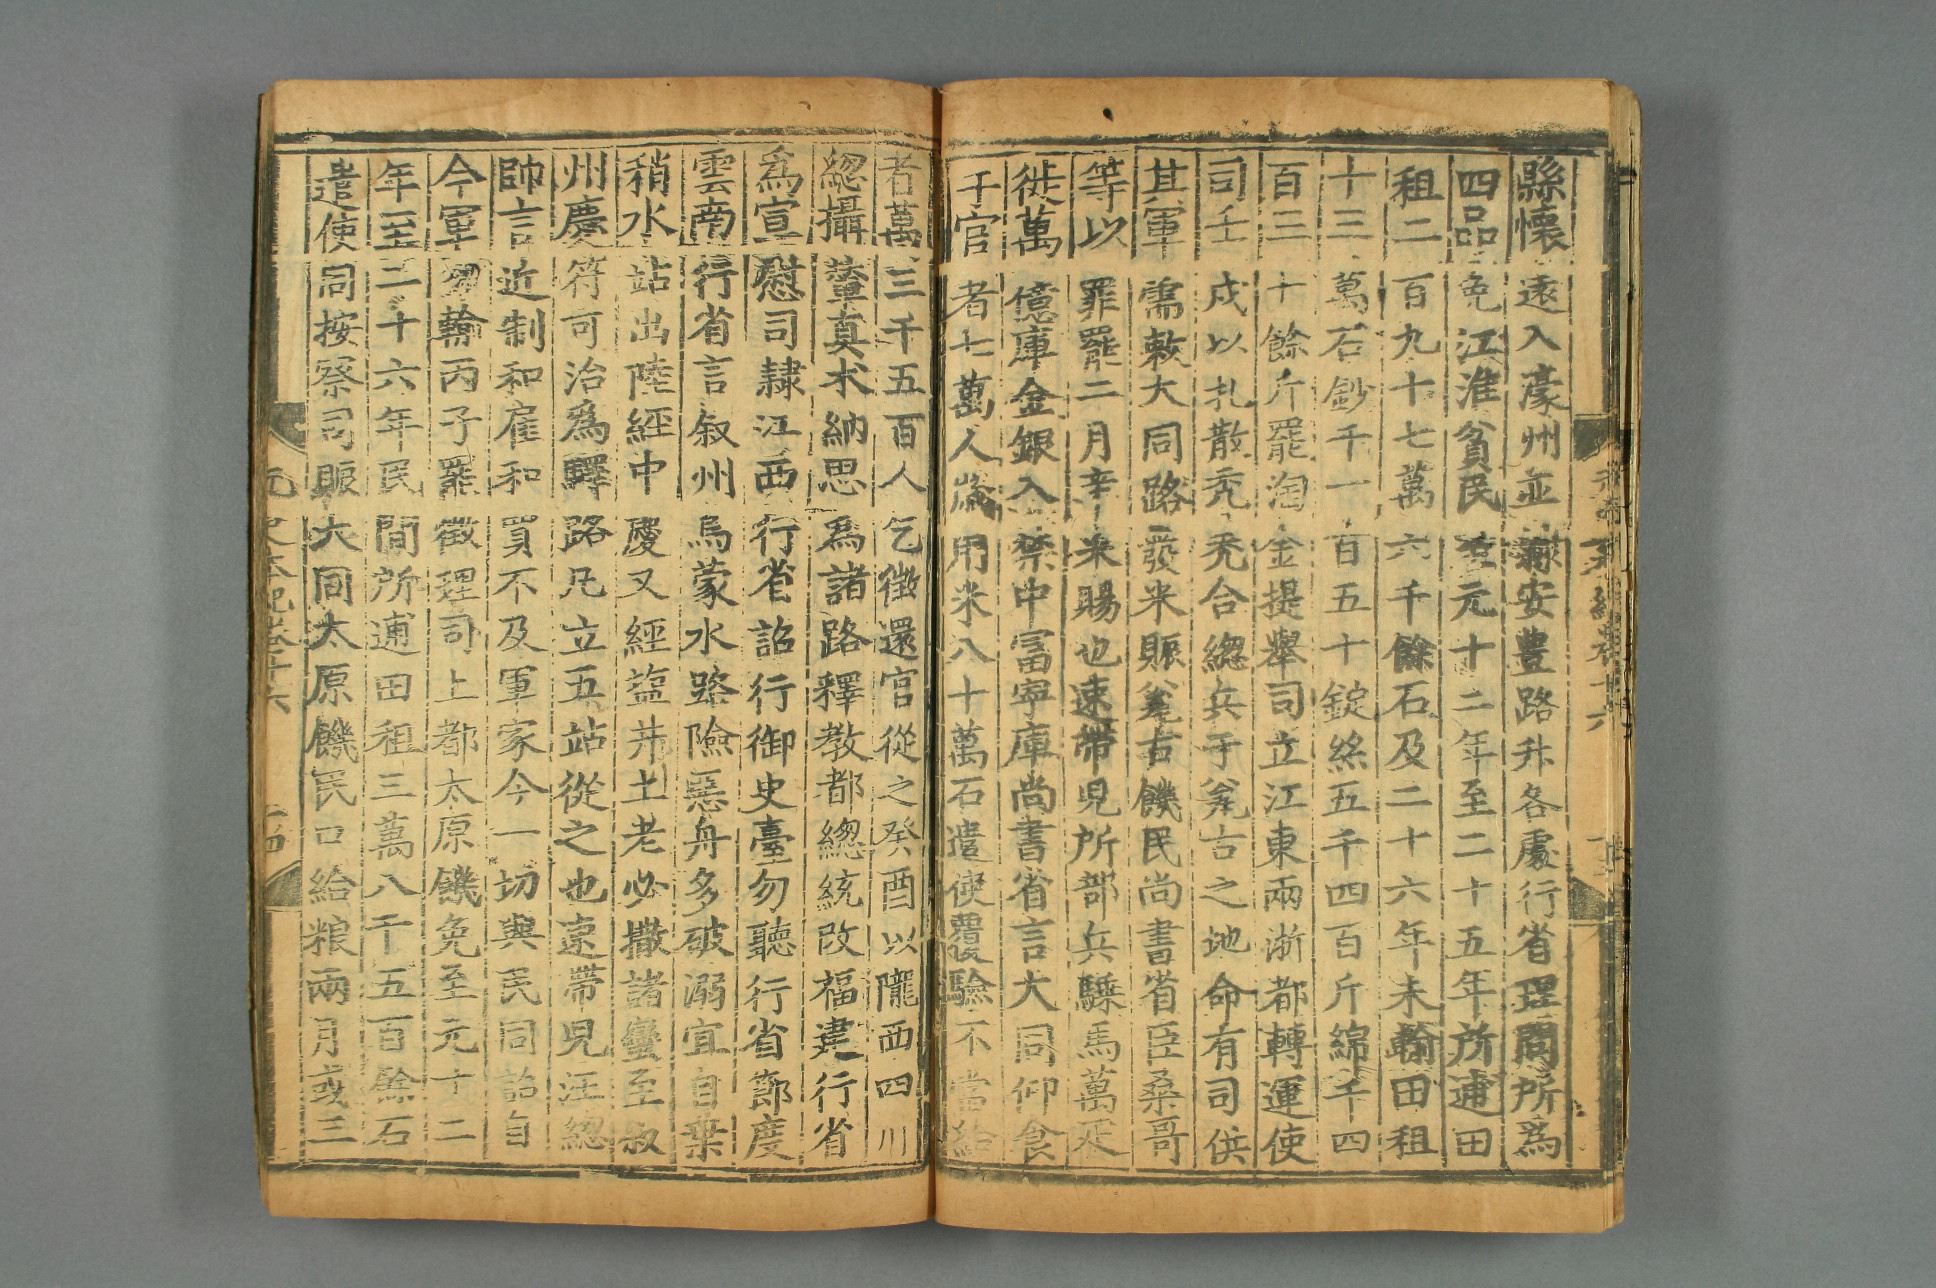 縣懷遠入濠州並隷安豊路升各處行省理問所爲
四品免江淮貧民至元十二年至二十五年所逋田
租二百九十七萬六千餘石及二十六年未輸田租
十三萬石鈔千一百五十錠絲五千四百斤綿千四
百三十餘斤罷淘金提舉司立江東兩浙都轉運使
司壬戌以扎散禿禿合總兵于瓮吉之地命有司供
其軍需敕大同路發米賑瓮古饑民尚書省臣桑哥
等以罪罷二月辛未賜也速帶兒所部兵騬馬萬疋
徙萬億庫金銀入禁中富寧庫尚書省言大同仰食
于官者七萬人歲用米八十萬石遣使覆驗不當給
者萬三千五百人乞徵還官從之癸酉以隴西四川
緫攝輦真术納思爲諸路釋教都總統改福建行省
爲宣慰司隷江西行省詔行御史臺勿聽行省節度
雲南行省言叙州烏蒙水路險惡舟多破溺宜自葉
稍水站出陸經中慶又經鹽井土老必撒諸蠻至叙
州慶符可治爲驛路凡立五站從之也速帶兒汪總
帥言近制和雇和買不及軍家今一切與民同詔自
今軍勿輸丙子罷徵理司上都太原饑免至元十二
年至二十六年民間所逋田租三萬八千五百餘石
遣使同按察司賑大同太原饑民口給粮兩月或三
元史本紀卷十六